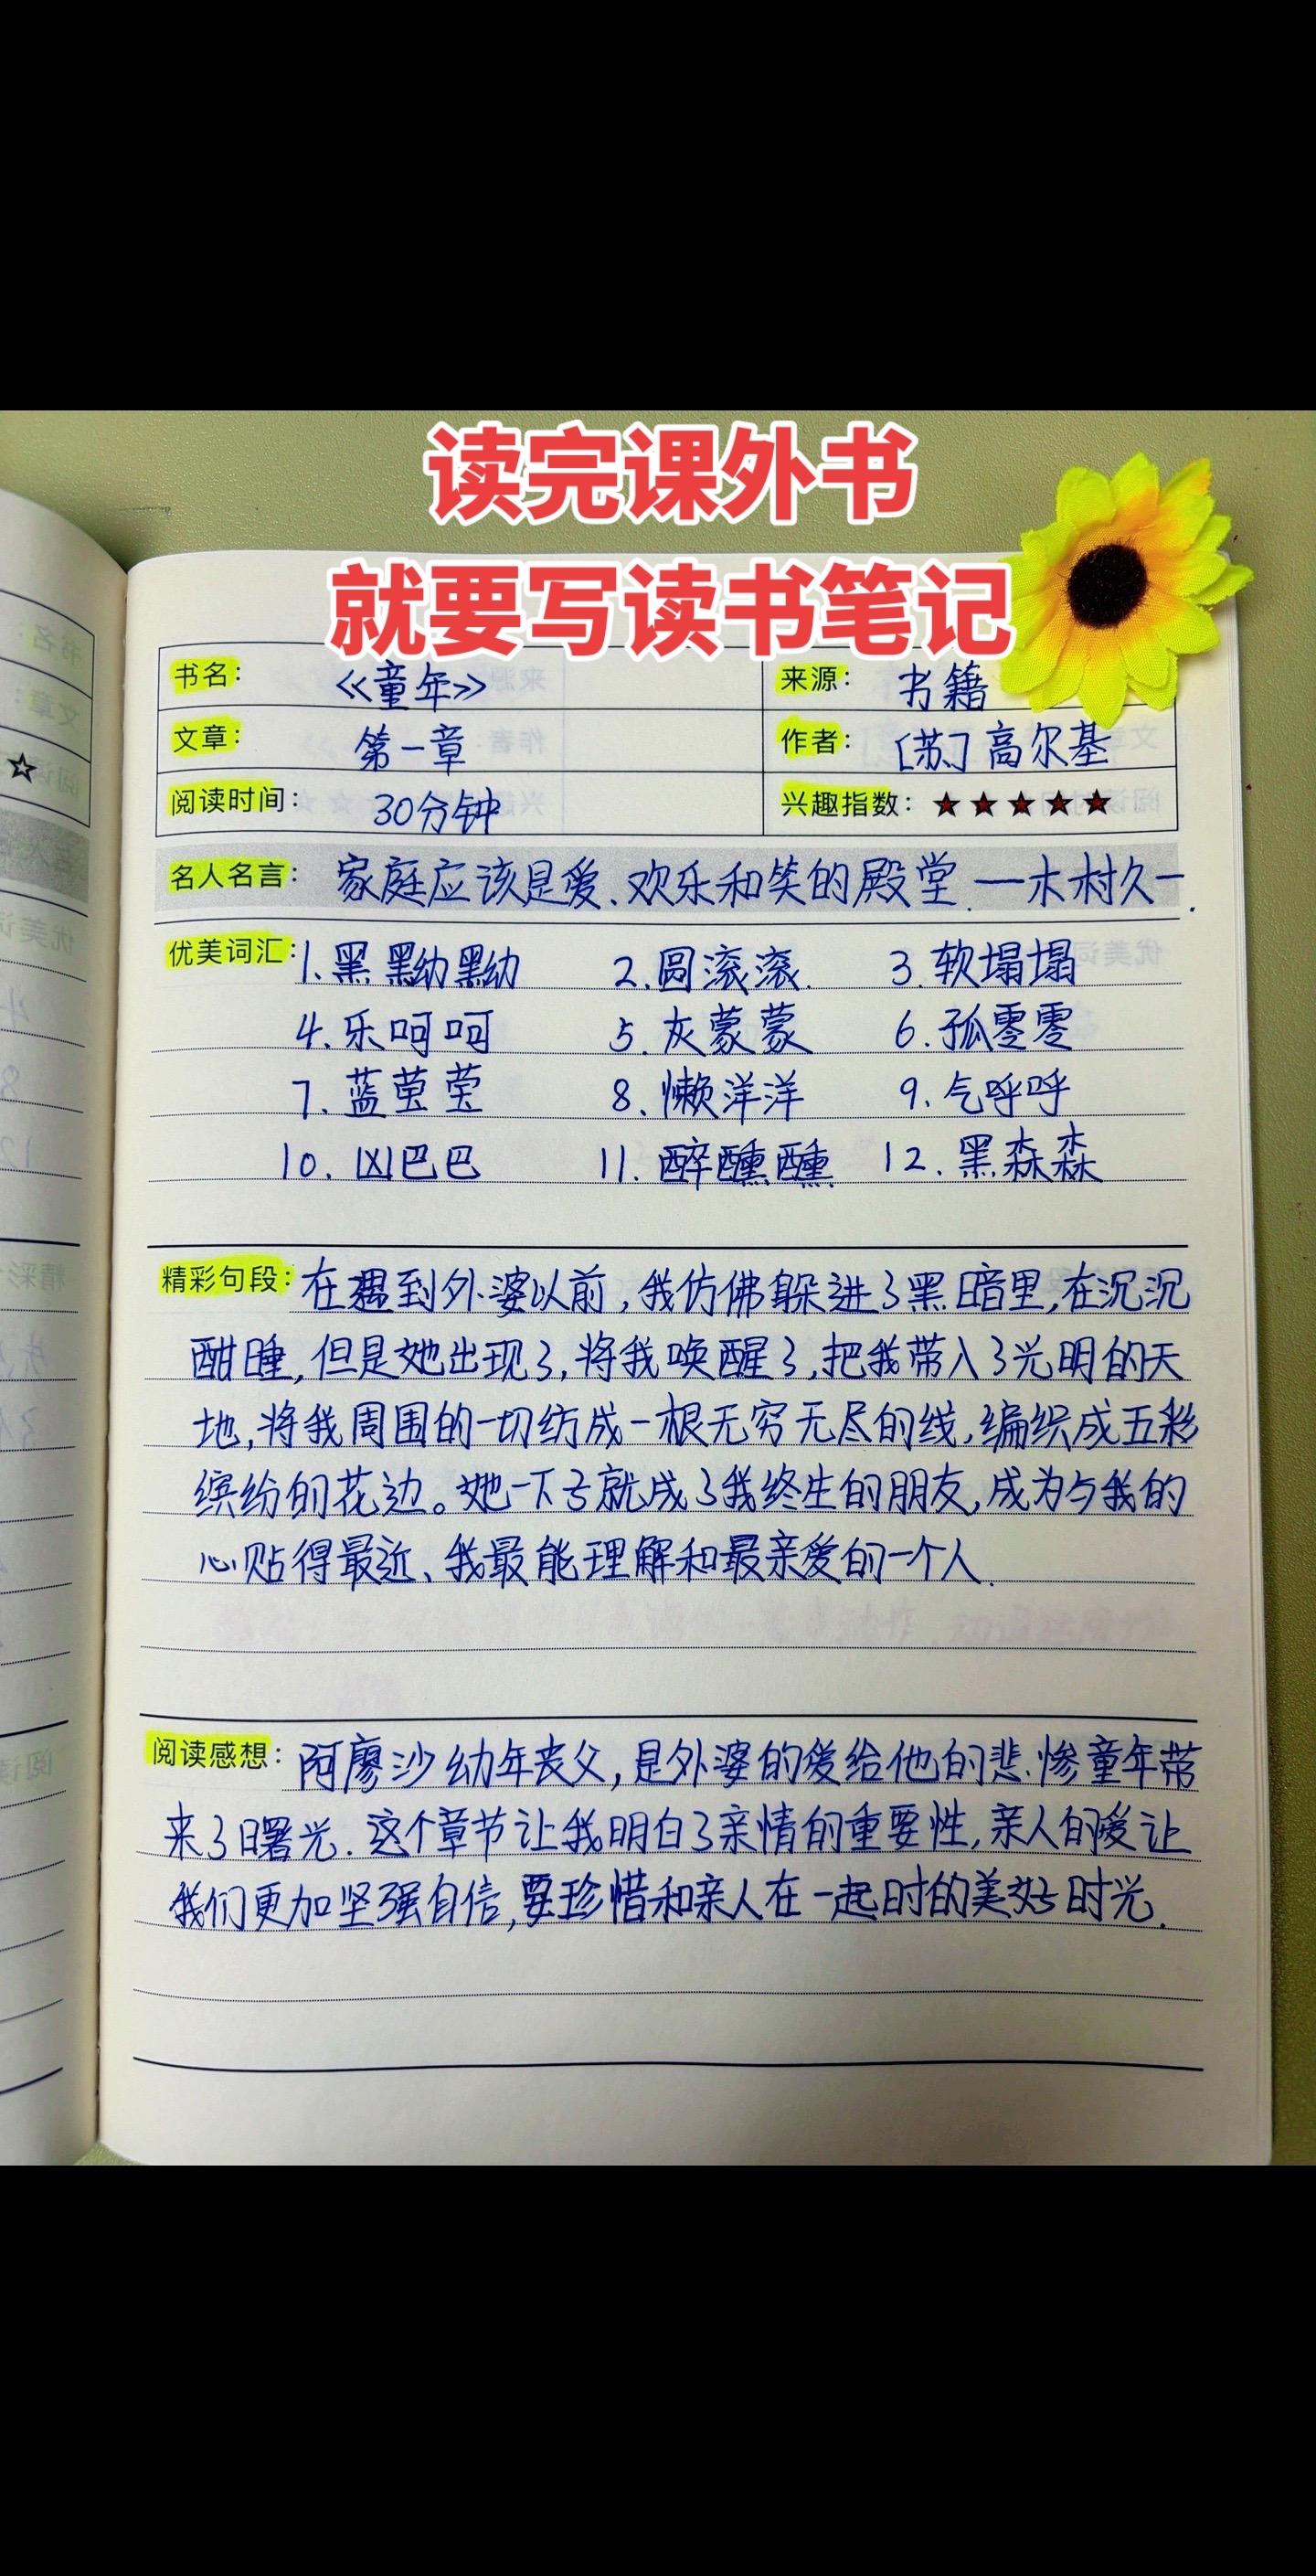 读完课外书
就要写读书笔记
书名： 《童年》 来源： 书籍
文章： 第一章 作者： [苏]高尔基
阅读时间： 30分钟 兴趣指数：★★★★★
名人名言： 家庭应该是爱、欢乐和笑的殿堂.——木村久一.
优美词汇： 1.黑黝黝 2.圆滚滚. 3.软塌塌
4.乐呵呵 5.灰蒙蒙 6.孤零零
7.蓝莹莹 8.懒洋洋 9.气呼呼
10.凶巴巴 11.醉醺醺 12.黑森森
精彩句段： 在遇到外婆以前,我仿佛躲进了黑暗里,在沉沉
酣睡,但是她出现了,将我唤醒了,把我带入了光明的天
地,将我周围的一切纺成一根无穷无尽的线,编织成五彩
缤纷的花边。她一下子就成了我终生的朋友,成为与我的
心贴得最近、我最能理解和最亲爱的一个人.
阅读感想： 阿廖沙幼年丧父,是外婆的爱给他的悲惨童年带
来了曙光.这个章节让我明白了亲情的重要性,亲人的爱让
我们更加坚强自信,要珍惜和亲人在一起时的美好时光.